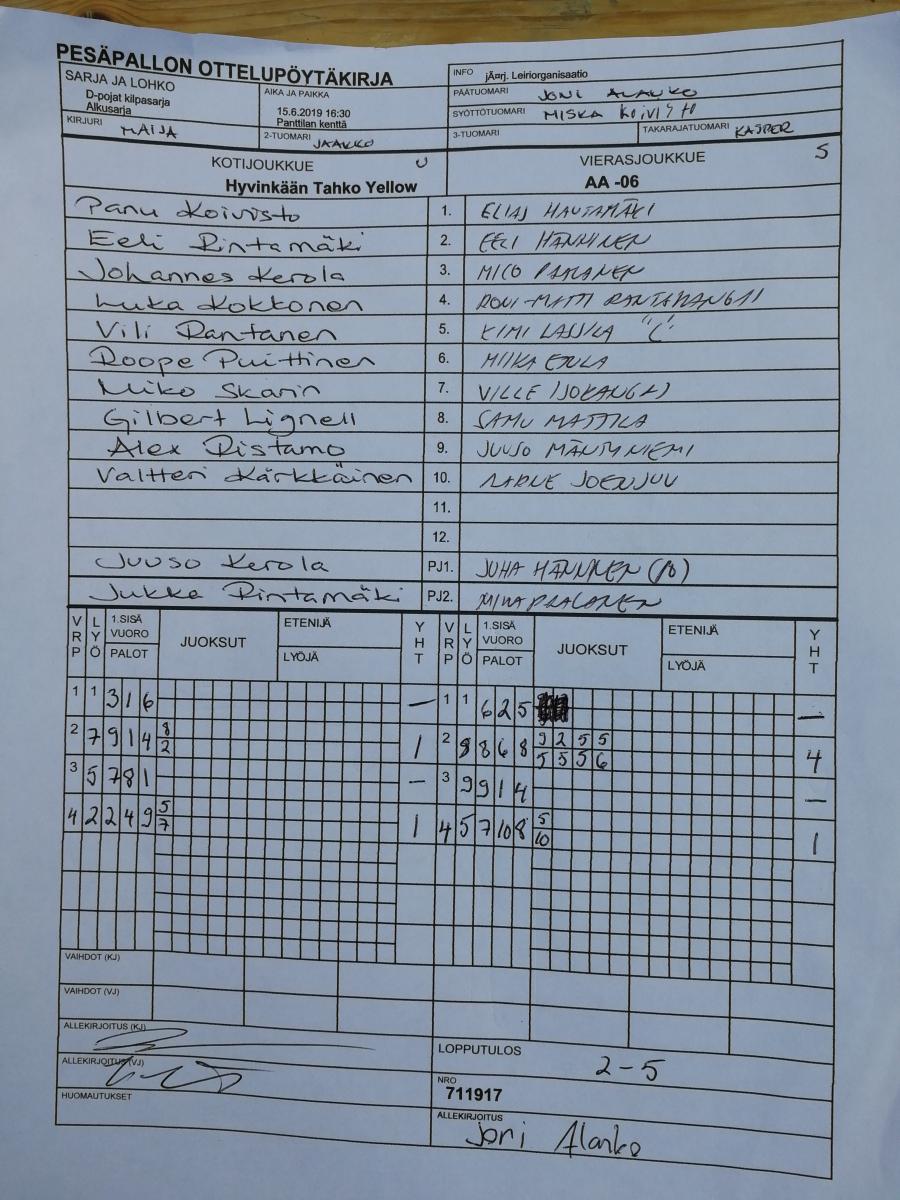 PESÄPALLON OTTELUPÖYTÄKIRJA
SARJA JA LOHKO
D-pojat kilpasarja
Alkusarja
AIKA JA PAIKKA
15.6.2019 16:30
Panttilan kenttä
INFO jÃ¤rj. Leiriorganisaatio
PÄÄTUOMARI JONI ALANKO
SYÖTTÖTUOMARI MISKA KOIVISTO
KIRJURI MAIJA
2-TUOMARI JAAKKO
3-TUOMARI
TAKARAJATUOMARI KASPER
KOTIJOUKKUE U
Hyvinkään Tahko Yellow
VIERASJOUKKUE S
AA -06
Panu Koivisto 1. ELIAS HAUTAMÄKI
Eeli Rintamäki 2. EELI HÄNNINEN
Johannes Kerola 3. MICO PAALANEN
Luka Kokkonen 4. RONI-MATTI RANTAKANGAS
Vili Rantanen 5. KIMI LASSILA "C"
Roope Puittinen 6. MIIKA EROLA
Miko Skarin 7. VILLE ISOKANGAS
Gilbert Lignell 8. SAMU MATTILA
Alex Ristamo 9. JUUSO MÄNTYNIEMI
Valtteri Kärkkäinen 10. AARNE JOENJUU
11.
12.
Juuso Kerola PJ1. JUHA HÄNNINEN
Jukka Rintamäki PJ2. MIKA PAALANEN
VRP LYÖ 1.SISÄ VUORO PALOT JUOKSUT ETENIJÄ LYÖJÄ YHT VRP LYÖ 1.SISÄ VUORO PALOT JUOKSUT ETENIJÄ LYÖJÄ YHT
1 1 3 1 6 — 1 1 6 2 5 —
2 7 9 1 4 8 1 2 8 8 6 8 9 2 5 5 4
2 5 5 5 6
3 5 7 8 1 — 3 9 9 1 4 —
4 2 2 4 9 5 1 4 5 7 10 8 5 1
7 10
VAIHDOT (KJ)
VAIHDOT (VJ)
ALLEKIRJOITUS (KJ)
LOPPUTULOS 2-5
ALLEKIRJOITUS (VJ)
NRO
711917
HUOMAUTUKSET
ALLEKIRJOITUS
Joni Alanko